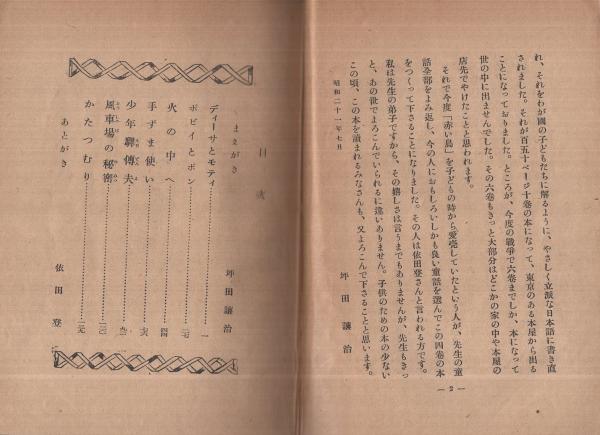 れ、それをわが國の子どもたちに解るように、やさしく立派な日本語に書き直
されました。それが百五十ページ十巻の本になって、東京のある本屋から出る
ことになっておりました。ところが、今度の戰爭で六巻までしか、本になって
世の中に出ませんでした。その六巻もきっと大部分はどこかの家の中や本屋の
店先でやけたことと思われます。
それで今度「赤い鳥」を子どもの時から愛讀していたという人が、先生の童
話全部をよみ返し、今の人におもしろいしかも良い童話を選んでこの四巻の本
をつくって下さることになりました。その人は依田登さんと言われる方です。
私は先生の弟子ですから、その嬉しさは言うまでもありませんが、先生もきっ
と、あの世でよろこんでいられるに違いありません。子供のための本の少ない
この頃、この本を讀まれるみなさんも、又よろこんで下さることと思います。
昭和二十一年七月
坪田讓治
— 2 —
目次
まえがき 坪田讓治
ディーサとモティ 一
ポビイとボン
火の中へ
手ずま使い
少年驛傳夫
風車場の秘密
かたつむり
あとがき 依田登